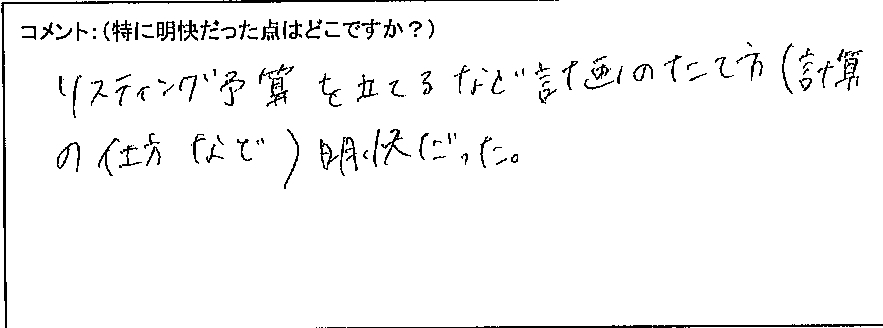 コメント:(特に明快だった点はどこですか?)
リスティング予算を立てるなど計画のたて方(計算
の仕方など)明快だった。